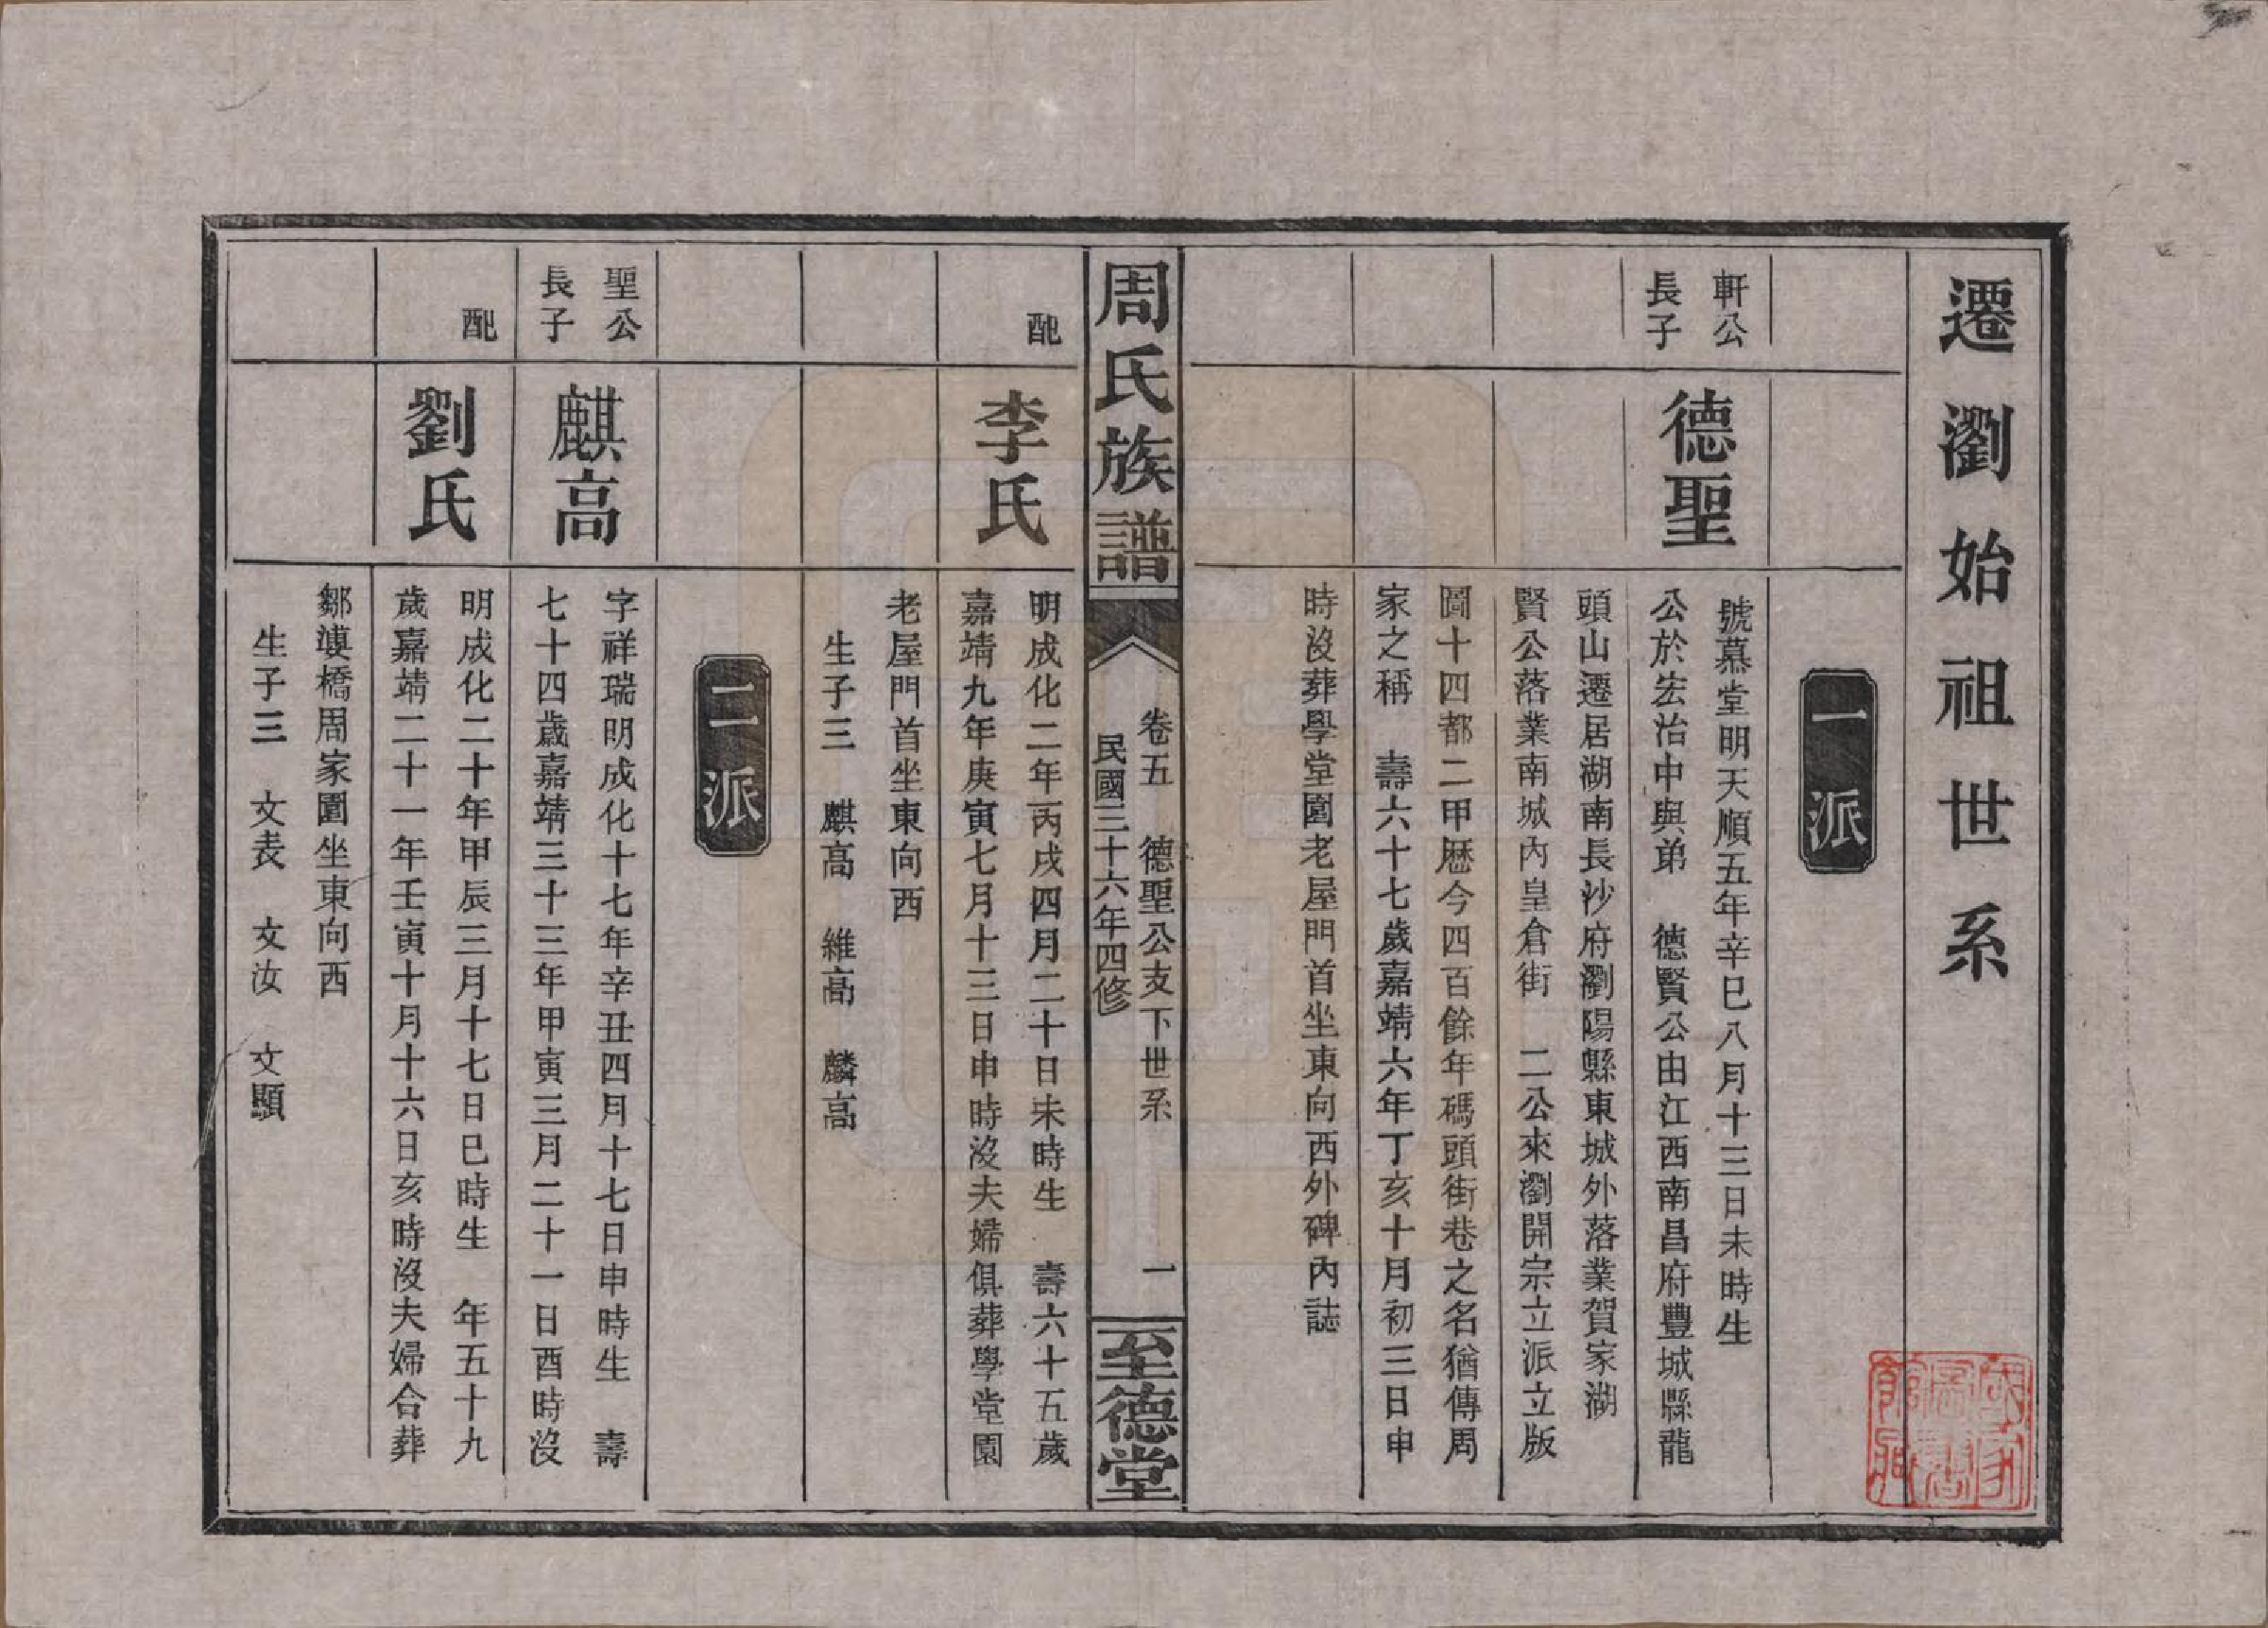 遷瀏始祖世系
一派
軒公
長子
德聖
號慕堂明天順五年辛巳八月十三日未時生
公於宏治中與弟 德賢公由江西南昌府豐城縣龍
頭山遷居湖南長沙府瀏陽縣東城外落業賀家湖
賢公落業南城內皇倉街 二公來瀏開宗立派立版
圖十四都二甲歷今四百餘年碼頭街巷之名猶傳周
家之稱 壽六十七歲嘉靖六年丁亥十月初三日申
時沒葬學堂園老屋門首坐東向西外碑內誌
周氏族譜
卷五 德聖公支下世系 一
民國三十六年四修
至德堂
配
李氏
明成化二年丙戌四月二十日未時生 壽六十五歲
嘉靖九年庚寅七月十三日申時沒夫婦俱葬學堂園
老屋門首坐東向西
生子三 麒高 維高 麟高
二派
聖公
長子
麒高
字祥瑞明成化十七年辛丑四月十七日申時生 壽
七十四歲嘉靖三十三年甲寅三月二十一日酉時沒
配
劉氏
明成化二十年甲辰三月十七日巳時生 年五十九
歲嘉靖二十一年壬寅十月十六日亥時沒夫婦合葬
鄒漊橋周家園坐東向西
生子三 文表 文汝 文顯